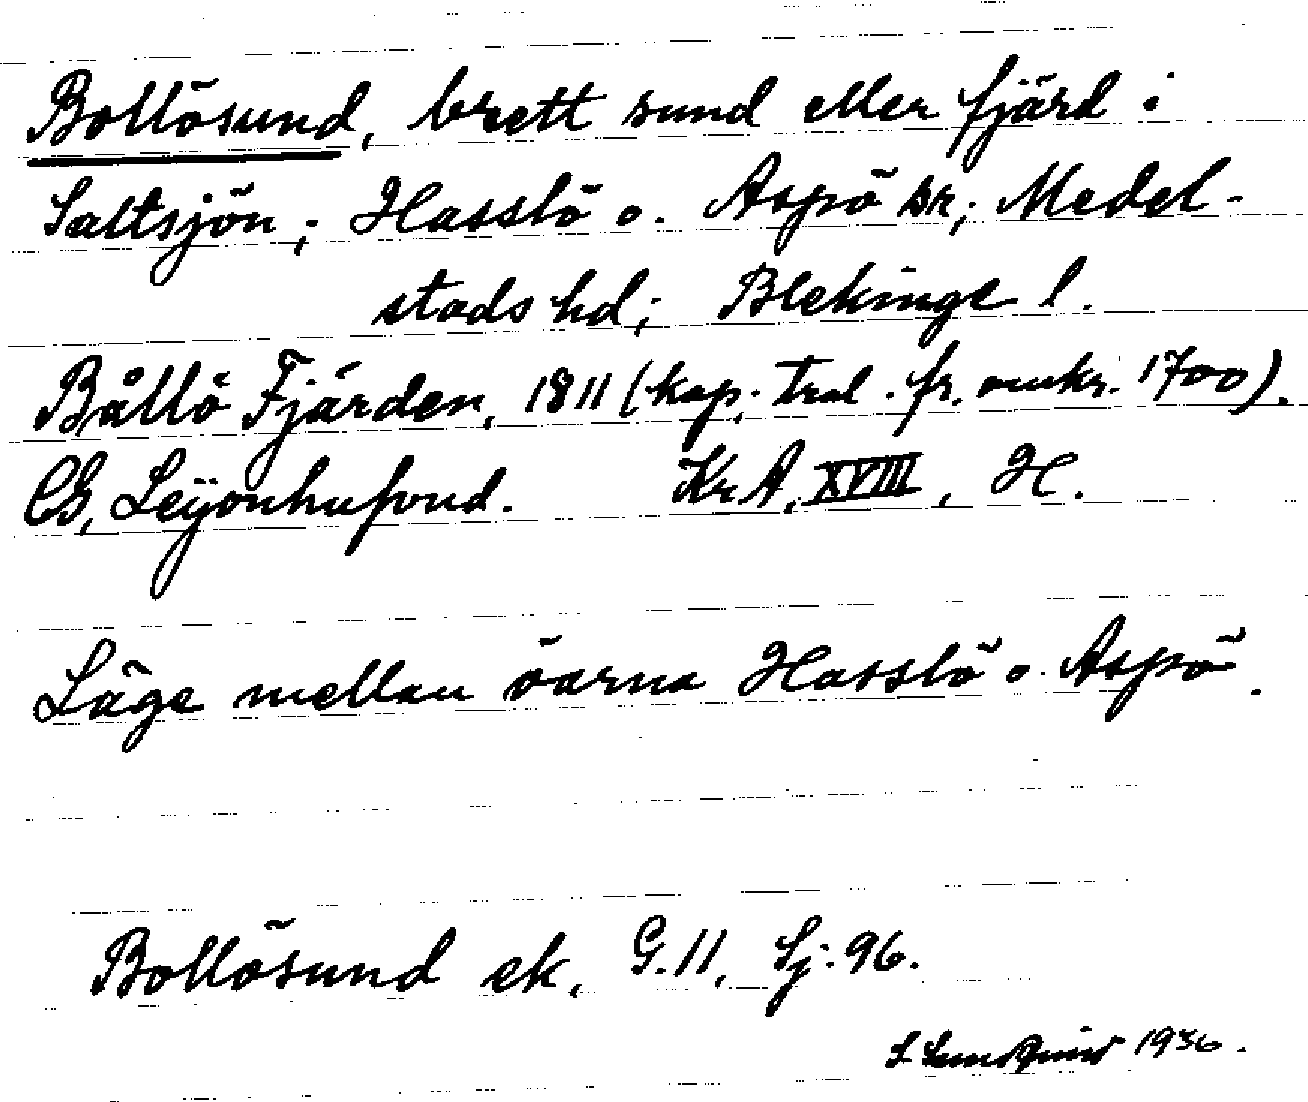 Bollösund, brett sund eller fjärd i
Saltsjön; Hasslö o. Aspö sr; Medel-
stads hd; Blekinge l.
Bållö Fjärden, 1811 (kop. tral. fr. omkr. 1700).
CG, Leÿonhufvud. Kr.A, XVIII, H.
Läge mellan öarna Hasslö o. Aspö.
Bollösund ek, G.11, Sj. 96.
1936.